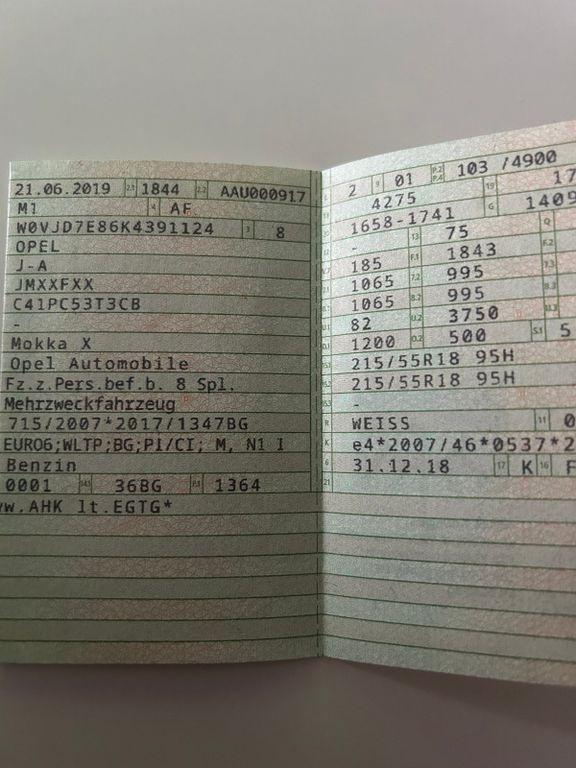 21.06.2019 2.1 1844 2.2 AAU000917
M1 4 AF
W0VJD7E86K4391124 3 8
OPEL
J-A
JMXXFXX
C41PC53T3CB
-
Mokka X
Opel Automobile
Fz.z.Pers.bef.b. 8 Spl.
Mehrzweckfahrzeug
715/2007*2017/1347BG
EURO6;WLTP;BG;PI/CI; M, N1 I
Benzin
0001 14.1 36BG P.1 1364
.AHK lt.EGTG*
2 9 01 P.2 P.4 103 /4900
4275 19 17
1658-1741 G 1409
- 13 75 Q
185 F.1 1843 F.2
1065 7.2 995 7.3
1065 8.2 995 8.3
82 U.2 3750 U.3
1200 O.2 500 S.1 5
215/55R18 95H
215/55R18 95H
-
R WEISS 11 0
K e4*2007/46*0537*2
6 31.12.18 17 K 16 F
21